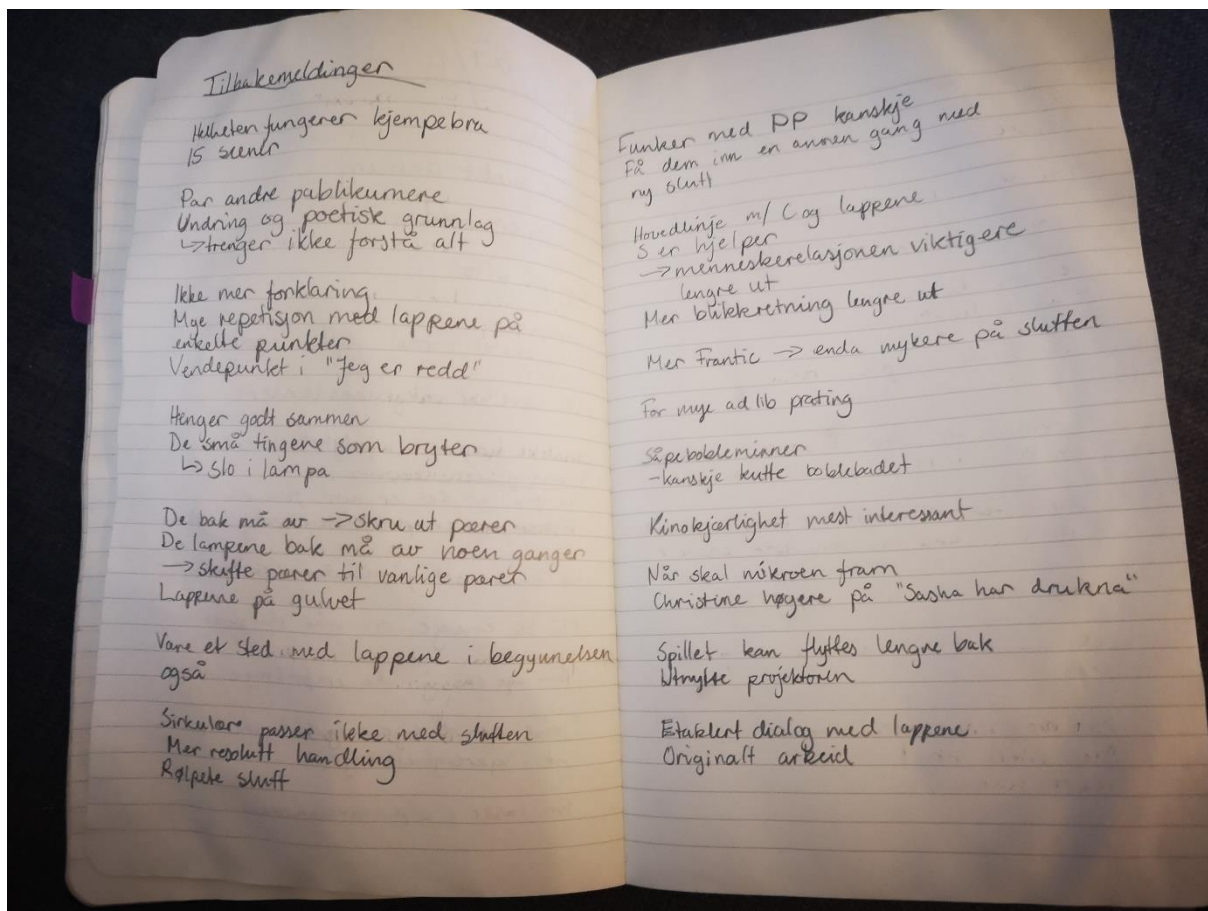 Tilbakemeldinger
Helheten fungerer kjempebra
15 scener
Par andre publikumere
Undring og poetisk grunnlag
↳trenger ikke forstå alt
Ikke mer forklaring
Mye repetisjon med lappene på
enkelte punkter
Vendepunkt i "Jeg er redd"
Henger godt sammen
De små tingene som bryter
↳ slo i lampa
De bak må av → skru ut pærer
De lampene bak må av noen ganger
→ skifte pærer til vanlige pærer
Lappene på gulvet
Være et sted med lappene i begynnelsen
også
Sirkulære passer ikke med slutten
Mer resolutt handling
Rølpete slutt
Funker med PP kanskje
Få dem inn en annen gang med
ny slutt
Hovedlinje m/ C og lappene
S er hjelper
→ menneskerelasjonen viktigere
lengre ut
Mer blikkretning lengre ut
Mer Frantic → enda mykere på slutten
For mye ad lib prating
Såpebobleminner
-kanskje kutte boblebadet
Kinokjærlighet mest interessant
Når skal mikroen fram
Christine høyere på "Sasha har drukna"
Spillet kan flyttes lengre bak
Utnytte projektoren
Etablert dialog med lappene
Originalt arbeid